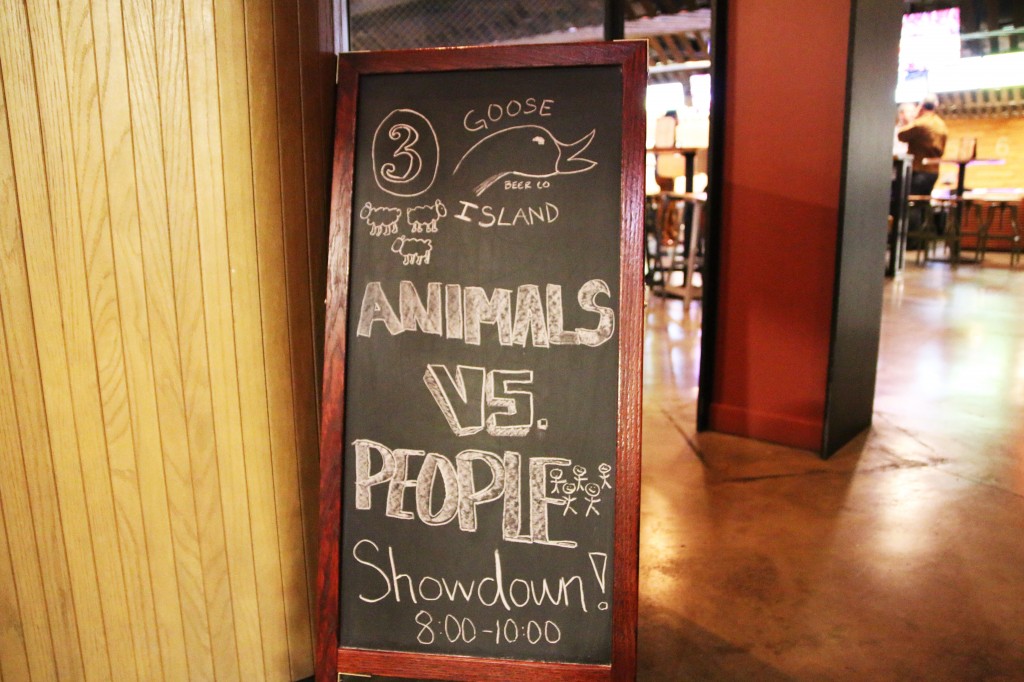 3
GOOSE
BEER CO
ISLAND
ANIMALS
VS.
PEOPLE
Showdown!
8:00-10:00